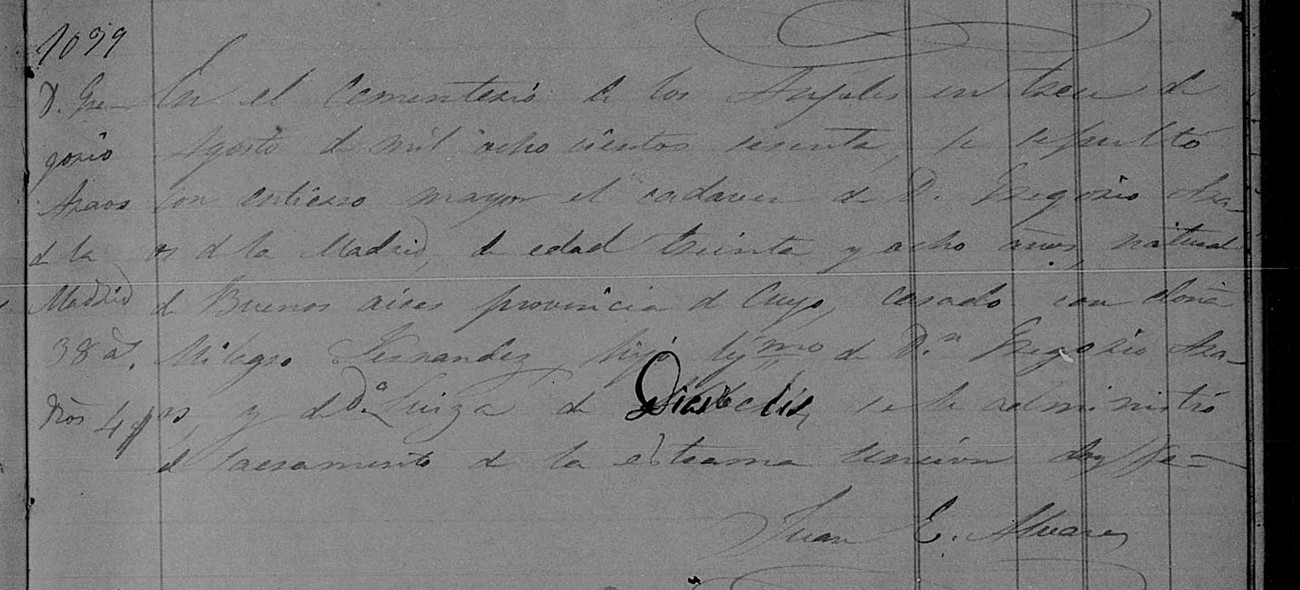 1099
D. Gre- En el Cementerio de los Anjeles en trece de
gorio Agosto de mil ocho cientos sesenta, se sepultó
Araos con entierro mayor el cadaver de D. Gregorio Ara-
de la os de la Madrid, de edad treinta y ocho años, natural
Madrid de Buenos aires provincia de Cuyo, casado con doña
38 a. Milagro Fernandez, hijo lejmo de Dn Gregorio Ara-
os, y de Da Luiza de se le administró
el sacramento de la estrema uncion doy fe=
Juan E. Alvarez